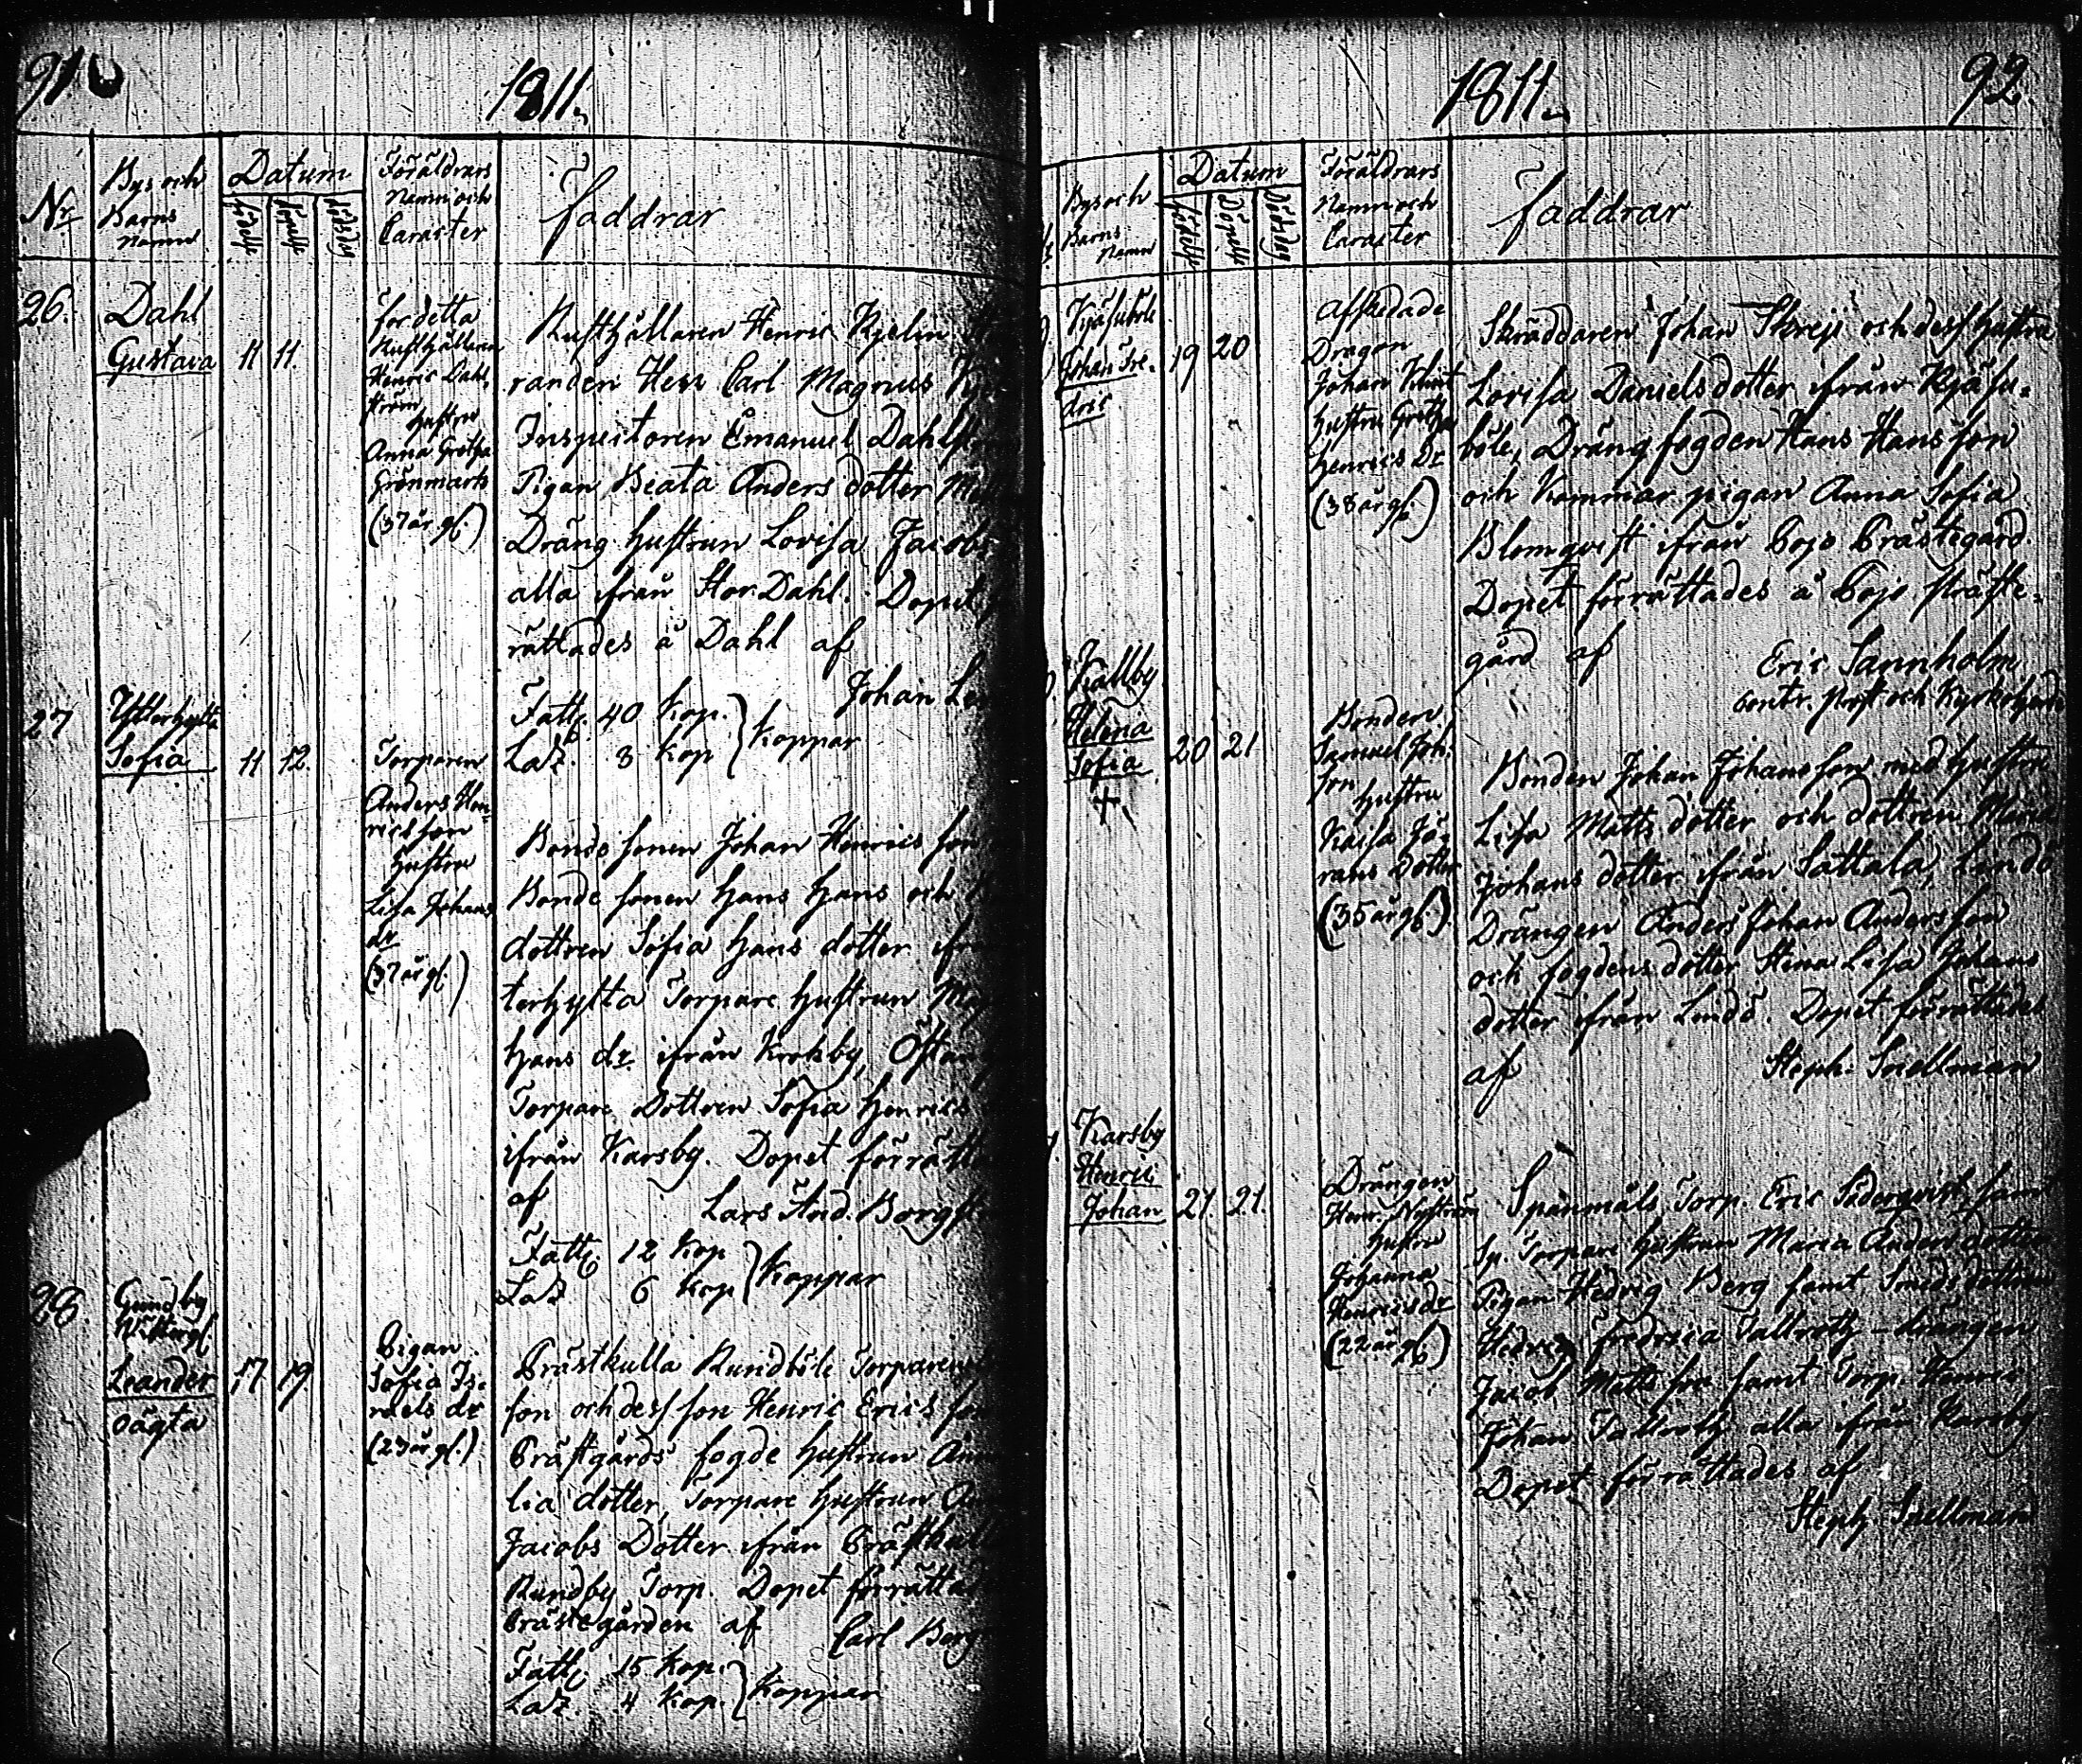 91
1811.
Nr
Bys och
Barns
Namn
Datum
födelse
döpelse
dödsdag
Föräldrars
Namn och
Caracter
Faddrar
26.
Dahl
Gustava
11 11.
för detta
Rusthållaren
Henric Dahl,
ström
hustru
Anna Gretha
Grönmark
(37 år gl.)
Rusthållaren Henric Kjelin
randen Herr Carl Magnus
Inspectoren Emanuel Dahlst
Pigan Beata Anders dotter
Dräng hustrun Lovisa Jacobs
alla ifrån Stor Dahl. Dopet
rättades å Dahl af
Johan
Fatt. 40 kop.
La. 8 kop } Koppar
27
Ytterhytta
Sofia
11 12.
Torparen
Anders Hen-
ricsson
hustru
Lisa Johans
dr
(37 år gl.)
Bonde sonen Johan Henrics son
Bonde sonen Hans Hans och
dottren Sofia Hans dotter ifr
terhytta Torpare hustrun
Hans dr. ifrån Krokby,
Torpare Dottren Sofia Henrics
ifrån Karsby. Dopet förrätta
af
Lars And. Borgst
Fatt. 12 kop
La. 6 kop } Koppar
28
Gundby
Leander
oägta
17 19
Pigan
Sofia Is-
raels dr
(23 år gl.)
Prästkulla Rundböle Torparen
son och dess son Henric Erics son
Prästgårds fogde hustrun
lia dotter, Torpare hustrun
Jacobs Dotter ifrån Prästkull
Rundby Torp. Dopet förrätta
Prästegården af Carl Berg
Fatt. 15 kop.
La. 4 kop. } Koppar
1811.
92.
Bys och
Barns
Namn
Datum
födelse
Döpelse
Dödsdag
Föräldrars
Namn och
Caracter
Faddrar
Johan Fre-
dric
19 20
Afskedade
Dragon
Johan
hustru Gretha
Henrics Dr
(38 år gl.)
Skräddaren Johan och dess hustru
Lovisa Daniels dotter ifrån Kjäsu-
böle, Dräng fogden Hans Hans son
och Kammar pigan Anna Sofia
Blomqvist ifrån Pojo Prästegård.
Dopet förrättades å Pojo präste-
gård af
Eric Sannholm
Contr. Prost och Kyrkoherde
Kallby
Helena
Sofia
20 21
Bonden
Samuel Joh.
son
hustru
Kaisa Jö-
rans dotter
(35 år gl.)
Bonden Johan Johansson med hustru
Lisa Matts dotter och dottren Maria
Johans dotter ifrån Sattala, Lindö
Drängen Anders Johan Andersson
och fogdens dotter Stina Lisa Johans
dotter ifrån Lindö. Dopet förrättades
af
Steph. Snellman
Karsby
Henric
Johan
21 21.
Drängen
Henr. Nyström
hustru
Johanna
Henricsdr
(22 år gl.)
Spånmåls Torp. Eric Söderqvist, samt
Sp. Torpare hustrun Maria Anders dotter
Pigan Hedvig Berg samt Smeds dottren
Hedvig Fredrica Tallroth - drängen
Jacob Matts son samt Torp. Henric
Johan Tallroth alla ifrån Karsby
Dopet förrättades af
Steph. Snellman